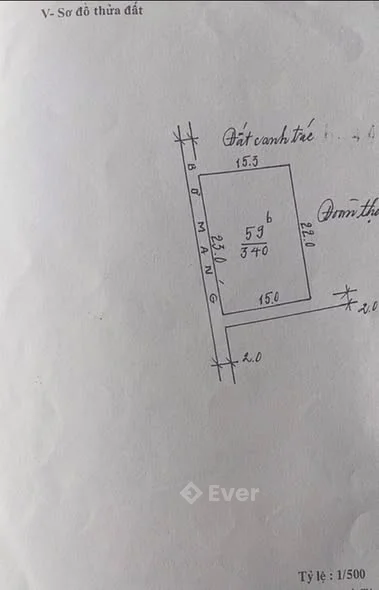 V- Sơ đồ thửa đất
Đất canh tác
15.3
BỜ MÁNG
23.0
59b
340
22.0
Đoàn
15.0
2.0
2.0
Ever
Tỷ lệ : 1/500